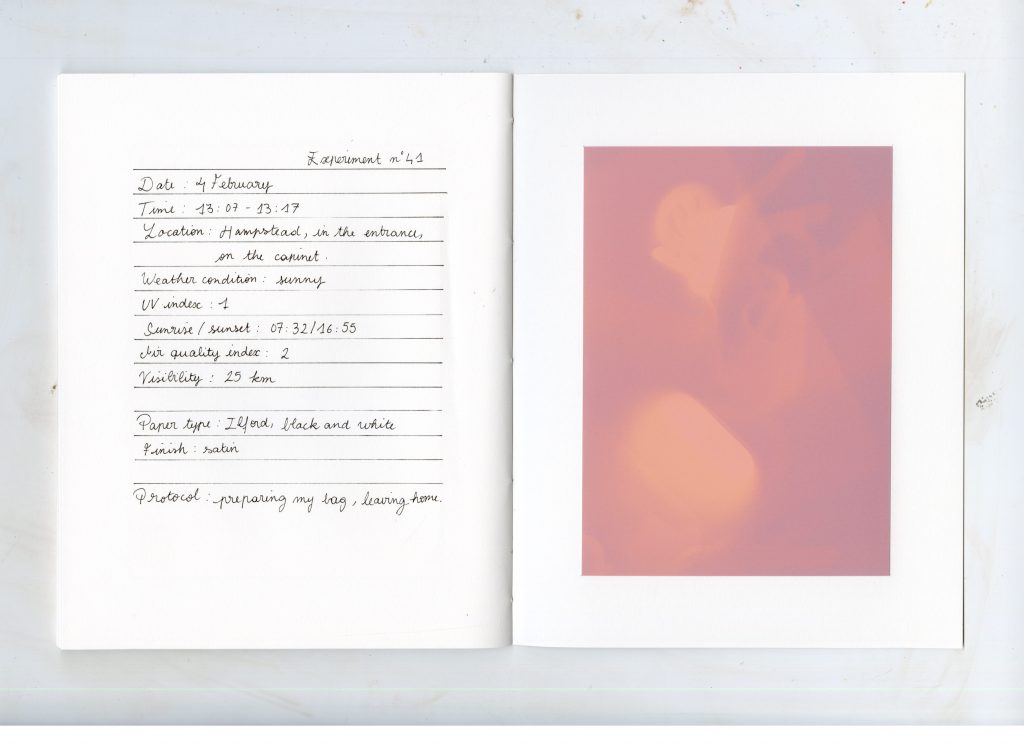 Experiment n°41
Date : 4 February
Time : 13:07 - 13:17
Location : Hampstead, in the entrance,
on the cabinet.
Weather condition : sunny
UV index : 1
Sunrise / sunset : 07:32/16:55
Air quality index : 2
Visibility : 25 km
Paper type : Ilford, black and white
Finish : satin
Protocol : preparing my bag, leaving home.